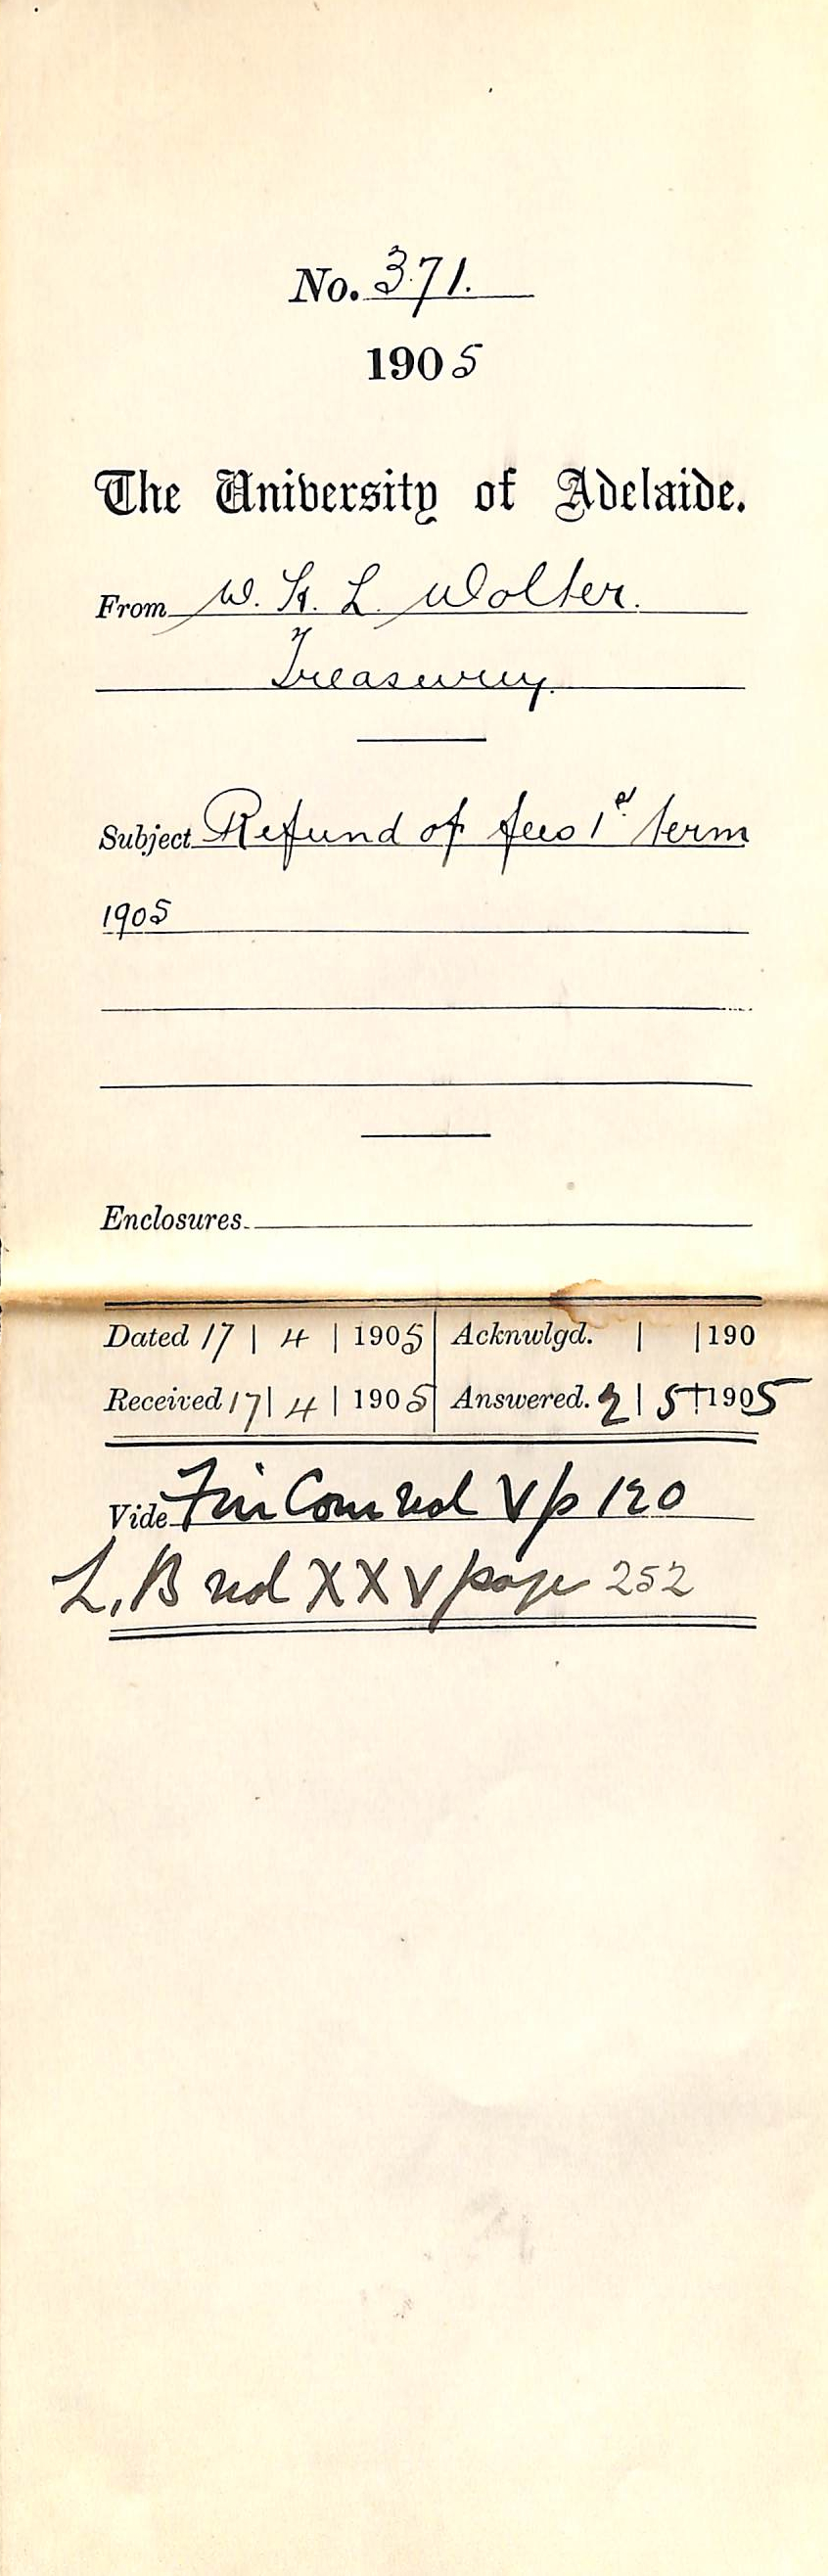 No. 371.
1905
The University of Adelaide.
From W. K. L. Wolter.
Treasury.
Subject Refund of fees 1st term
1905
Enclosures
Dated 17 | 4 | 1905 Acknwlgd. | | 190
Received 17 | 4 | 1905 Answered. 2 | 5 | 1905
Vide Fin Com vol V p 120
L. B vol XXV page 252